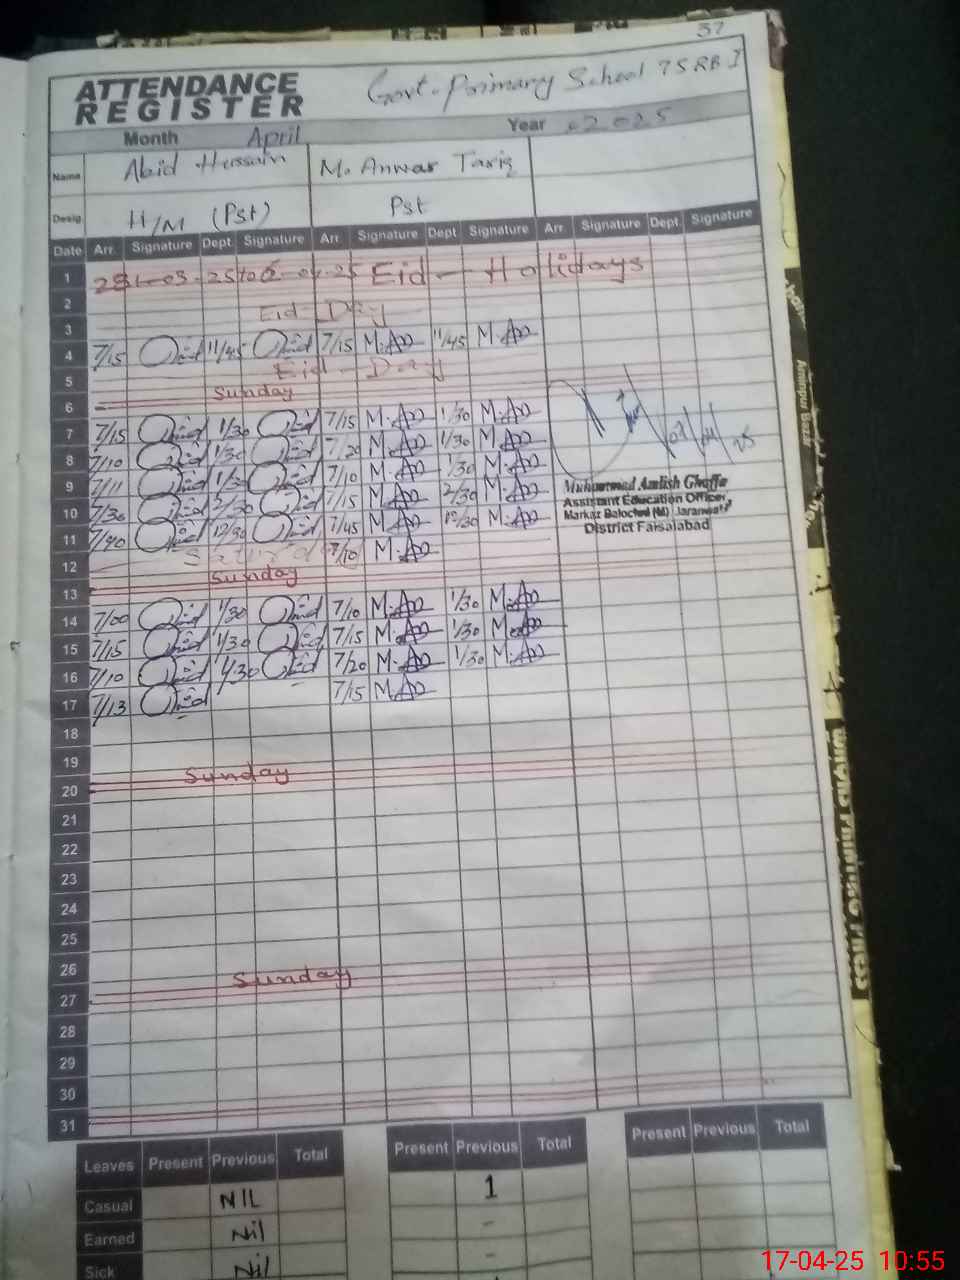 37
ATTENDANCE REGISTER
Govt. Primary School 75 RB I
Month April Year 2025
Name Abid Hussain M. Anwar Tariq
Desig. H/M (Pst) Pst
Date Arr. Signature Dept. Signature Arr. Signature Dept. Signature Arr. Signature Dept. Signature
1 Eid - Holidays
2
3 Eid - Day
4 7/15 11/45 7/15 M.A 11/45 M.A
5 Eid - Day
6 Sunday
7 7/15 1/30 7/15 M.A 1/30 M.A
8 7/10 1/30 7/20 M.A 1/30 M.A
9 7/11 1/30 7/10 M.A 1/30 M.A
10 7/30 2/30 7/15 M.A 2/30 M.A
11 7/40 12/30 7/45 M.A 12/30 M.A
12 7/10 M.A
13 Sunday
14 7/00 1/30 7/10 M.A 1/30 M.A
15 7/15 1/30 7/15 M.A 1/30 M.A
16 7/10 1/30 7/20 M.A 1/30 M.A
17 7/13 7/15 M.A
18
19
20 Sunday
21
22
23
24
25
26
27 Sunday
28
29
30
31
Assistant Education Officer,
District Faisalabad
Leaves Present Previous Total Present Previous Total Present Previous Total
Casual NIL 1
Earned Nil -
Sick Nil -
Aminpur Bazar
17-04-25 10:55